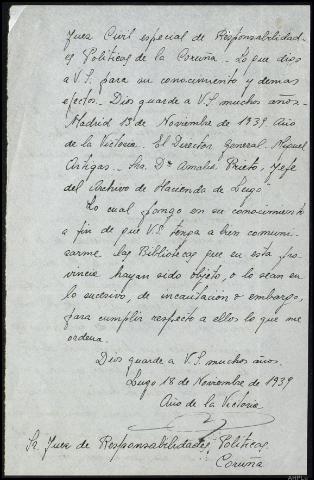 Juez Civil especial de Responsabilidad-
es Políticas de la Coruña - Lo que digo
a V.S. para su conocimiento y demas
efectos.- Dios guarde a V.S. muchos años-
Madrid 13 de Noviembre de 1939 Año
de la Victoria. El Director General. Miguel
Artigas.- Sra. Dª Amalia Prieto, Jefe
del Archivo de Hacienda de Lugo"
Lo cual pongo en su conocimiento
a fin de que V.S. tenga a bien comuni-
carme las Bibliotecas que en esta pro-
vincia hayan sido objeto, o lo sean en
lo sucesivo, de incautación o embargo,
para cumplir respecto a ellos lo que me
ordena.
Dios guarde a V.S. muchos años.
Lugo 18 de Noviembre de 1939
Año de la Victoria
Sr. Juez de Responsabilidades Políticas
Coruña
AHPLU